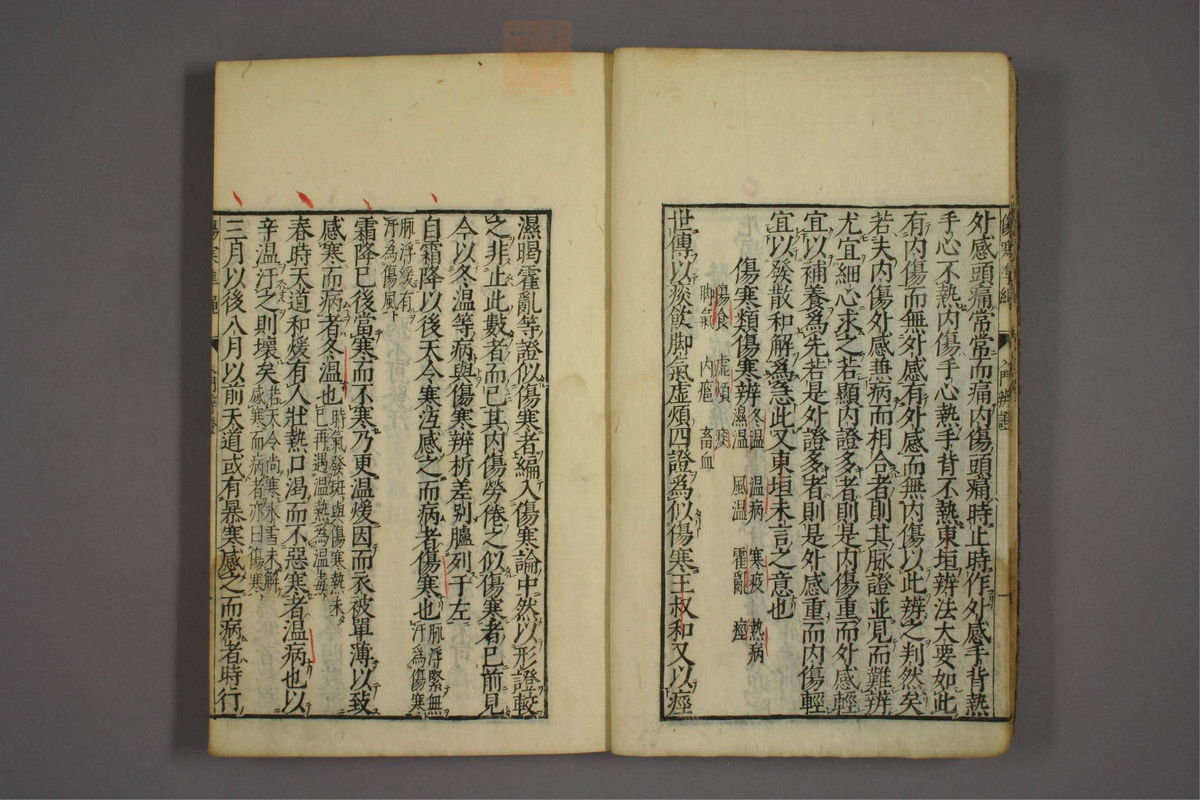 外感頭痛常常而痛内傷頭痛時止時作外感手背熱
手心不熱内傷手心熱手背不熱東垣辨法大要如此
有内傷而無外感有外感而無内傷以此辨之判然矣
若夫内傷外感兼病而相合者則其脉證並見而難辨
尤宜細心求之若顯内證多者則是内傷重而外感輕
宜以補養爲先若是外證多者則是外感重而内傷輕
宜以發散和解爲急此又東垣未言之意也
傷寒類傷寒辨
冬温 温病 寒疫 熱病
濕温 風温 霍亂 痙
傷食 虚煩 痰
脚氣 内癰 畜血
世傳以痰飲脚氣虚煩四證為似傷寒王叔和又以痙
濕暍霍亂等證似傷寒者編入傷寒論中然以形證較
之非止此數者而已其内傷勞倦之似傷寒者已前見
今以冬温等病與傷寒辨析差别臚列于左
自霜降以後天令寒沍感之而病者傷寒也
脉浮緊無汗為傷寒
脉浮緩有汗為傷風
霜降已後當寒而不寒乃更温煖因而衣被單薄以致
感寒而病者冬温也
時氣發斑與傷寒熱未
已再遇温熱為温毒
春時天道和煖有人壯熱口渴而不惡寒者温病也以
辛温汗之則壞矣
若天令尚寒氷雪未解
感寒而病者亦曰傷寒
三月以後八月以前天道或有暴寒感之而病者時行